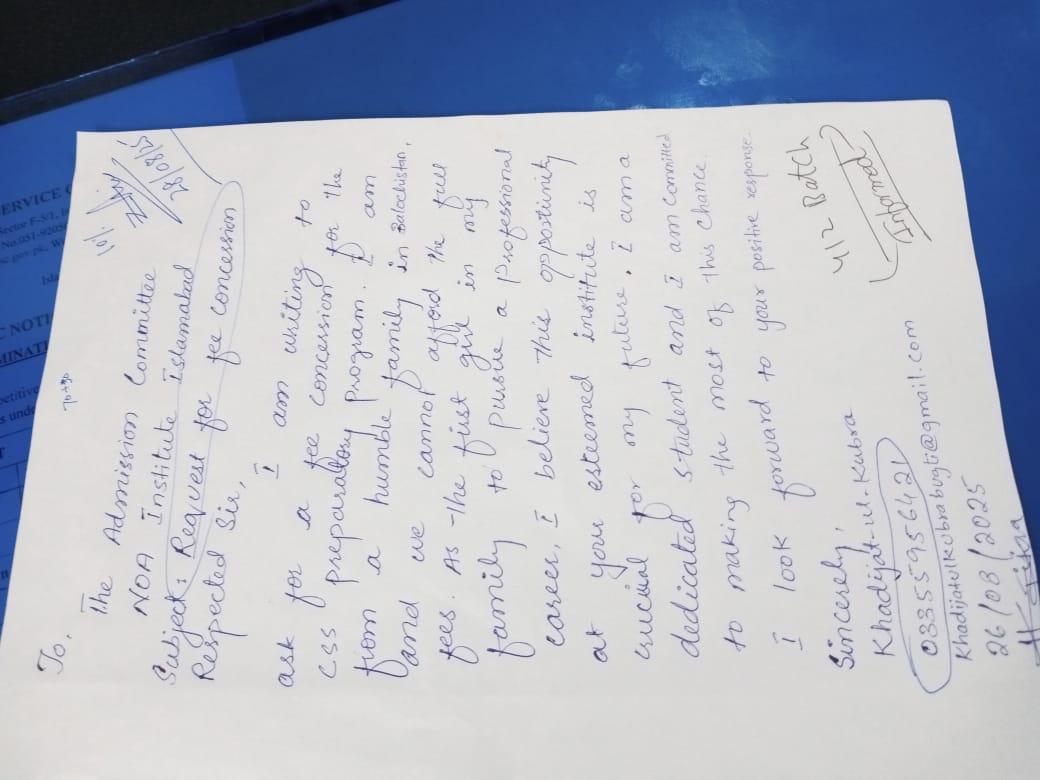 To,
The Admission Committee
NOA Institute Islamabad
Subject: Request for fee concession
Respected Sir,
I am writing to
ask for a fee concession for the
CSS preparatory program. I am
from a humble family in Balochistan,
and we cannot afford the full
fees. As the first girl in my
family to pursue a professional
career, I believe this opportunity
at your esteemed institute is
crucial for my future. I am a
dedicated student and I am committed
to making the most of this chance.
I look forward to your positive response.
Sincerely,
Khadijat-ul-Kubra
03355956421
Khadijatulkubrabugti@gmail.com
26/08/2025
28/08/25
412 Batch
Informed
SERVICE
Sector F-5/1,
No.051-9205
NOTI
MINATI
petitive
s unde